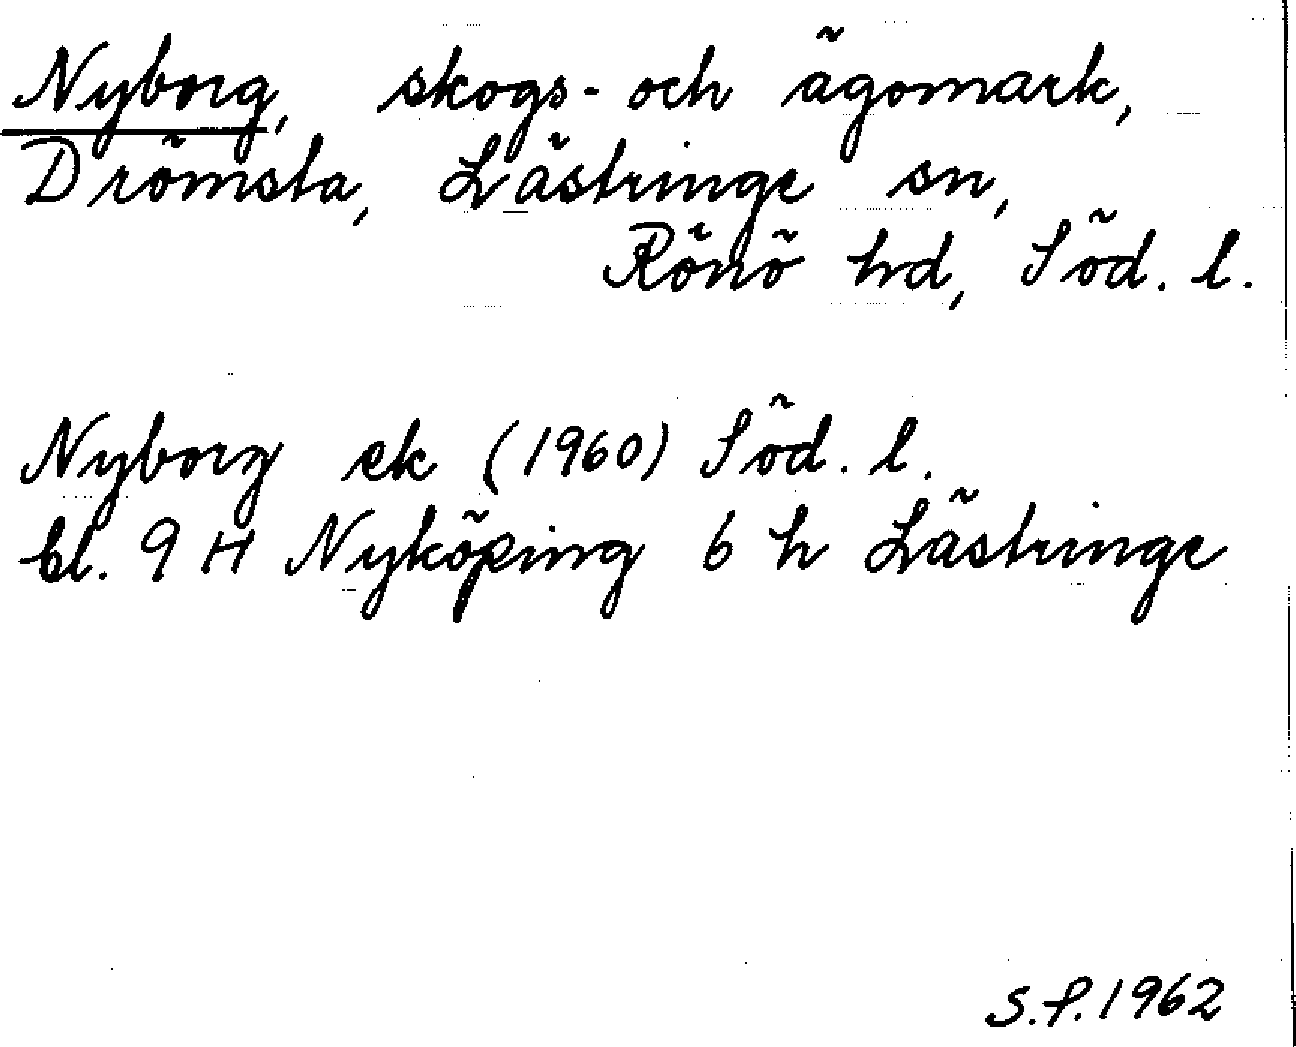 Nyborg, skogs- och ägomark,
Drömsta, Lästringe sn,
Rönö hd, Söd. l.
Nyborg ek (1960) Söd. l.
bl. 9 H Nyköping 6 h Lästringe
S.P. 1962